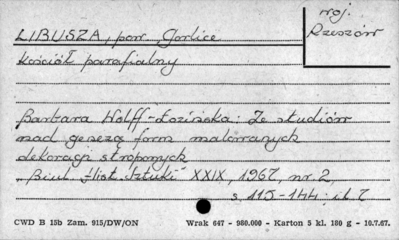 woj.
LIBUSZA, pow. Gorlice
Rzeszów
Kościół parafialny
Barbara Wolff-Łozińska: Ze studiów
nad genezą form malowanych
dekoracji stropowych
„Biul. Hist. Sztuki" XXIX, 1967, nr. 2,
s. 115-144; il. 7
CWD B 15b Zam. 915/DW/ON Wrak 647 - 980.000 - Karton 5 kl. 180 g - 10.7.67.